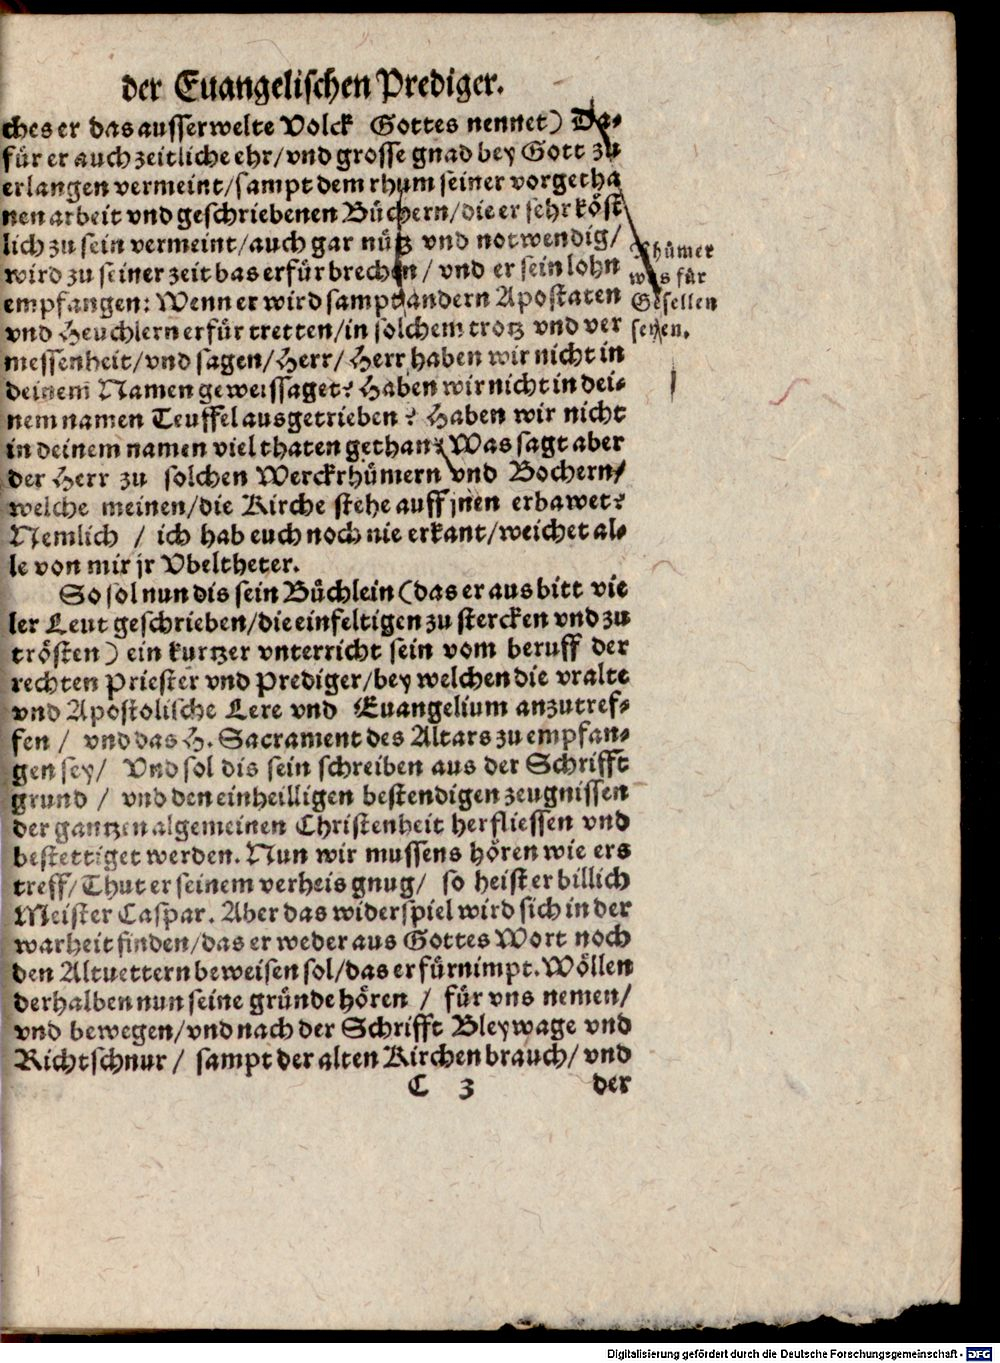 der Euangelischen Prediger.
ches er das ausserwelte Volck Gottes nennet) Da-
für er auch zeitliche ehr/vnd grosse gnad bey Gott zu
erlangen vermeint/sampt dem rhum seiner vorgetha
nen arbeit vnd geschriebenen Büchern/die er sehr köst
lich zu sein vermeint/auch gar nütz vnd notwendig/
wird zu seiner zeit bas erfür brechen/ vnd er sein lohn
empfangen: Wenn er wird sampt andern Apostaten
vnd Heuchlern erfür tretten/in solchem trotz vnd ver
messenheit/vnd sagen/Herr/Herr haben wir nicht in
deinem Namen geweissaget? Haben wir nicht in dei-
nem namen Teuffel ausgetrieben? Haben wir nicht
in deinem namen viel thaten gethan? Was sagt aber
der Herr zu solchen Werckrhümern vnd Bochern/
welche meinen/die Kirche stehe auff jnen erbawet?
Nemlich / ich hab euch noch nie erkant/weichet al-
le von mir jr Vbeltheter.
So sol nun dis sein Büchlein (das er aus bitt vie
ler Leut geschrieben/die einfeltigen zu stercken vnd zu
trösten) ein kurtzer vnterricht sein vom beruff der
rechten Priester vnd Prediger/bey welchen die vralte
vnd Apostolische Lere vnd Euangelium anzutref-
fen / vnd das H. Sacrament des Altars zu empfan-
gen sey/ Vnd sol dis sein schreiben aus der Schrifft
grund / vnd den einheilligen bestendigen zeugnissen
der gantzen algemeinen Christenheit herfliessen vnd
bestettiget werden. Nun wir mussens hören wie ers
treff/Thut er seinem verheis gnug/ so heist er billich
Meister Caspar. Aber das widerspiel wird sich in der
warheit finden/das er weder aus Gottes Wort noch
den Altuettern beweisen sol/das er fürnimpt. Wöllen
derhalben nun seine gründe hören / für vns nemen/
vnd bewegen/vnd nach der Schrifft Bleywage vnd
Richtschnur/ sampt der alten Kirchen brauch/ vnd
C 3 der
Rhümer
was für
Gesellen
seyen.
Digitalisierung gefördert durch die Deutsche Forschungsgemeinschaft - DFG